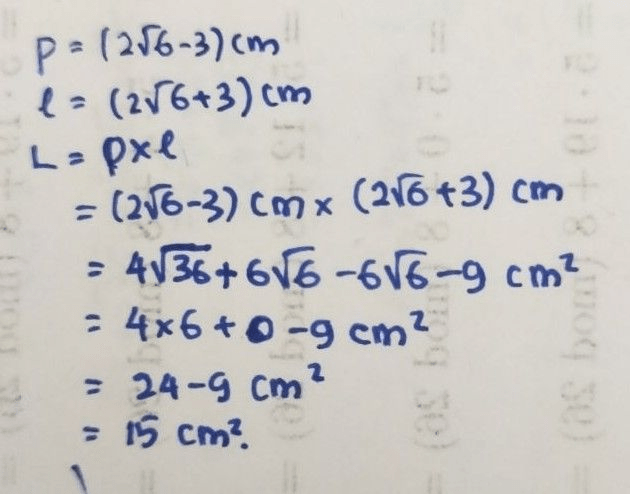 p = (2√6-3) cm
l = (2√6+3) cm
L = p×l
= (2√6-3) cm × (2√6+3) cm
= 4√36+6√6 -6√6-9 cm²
= 4×6 + 0 -9 cm²
= 24-9 cm²
= 15 cm².